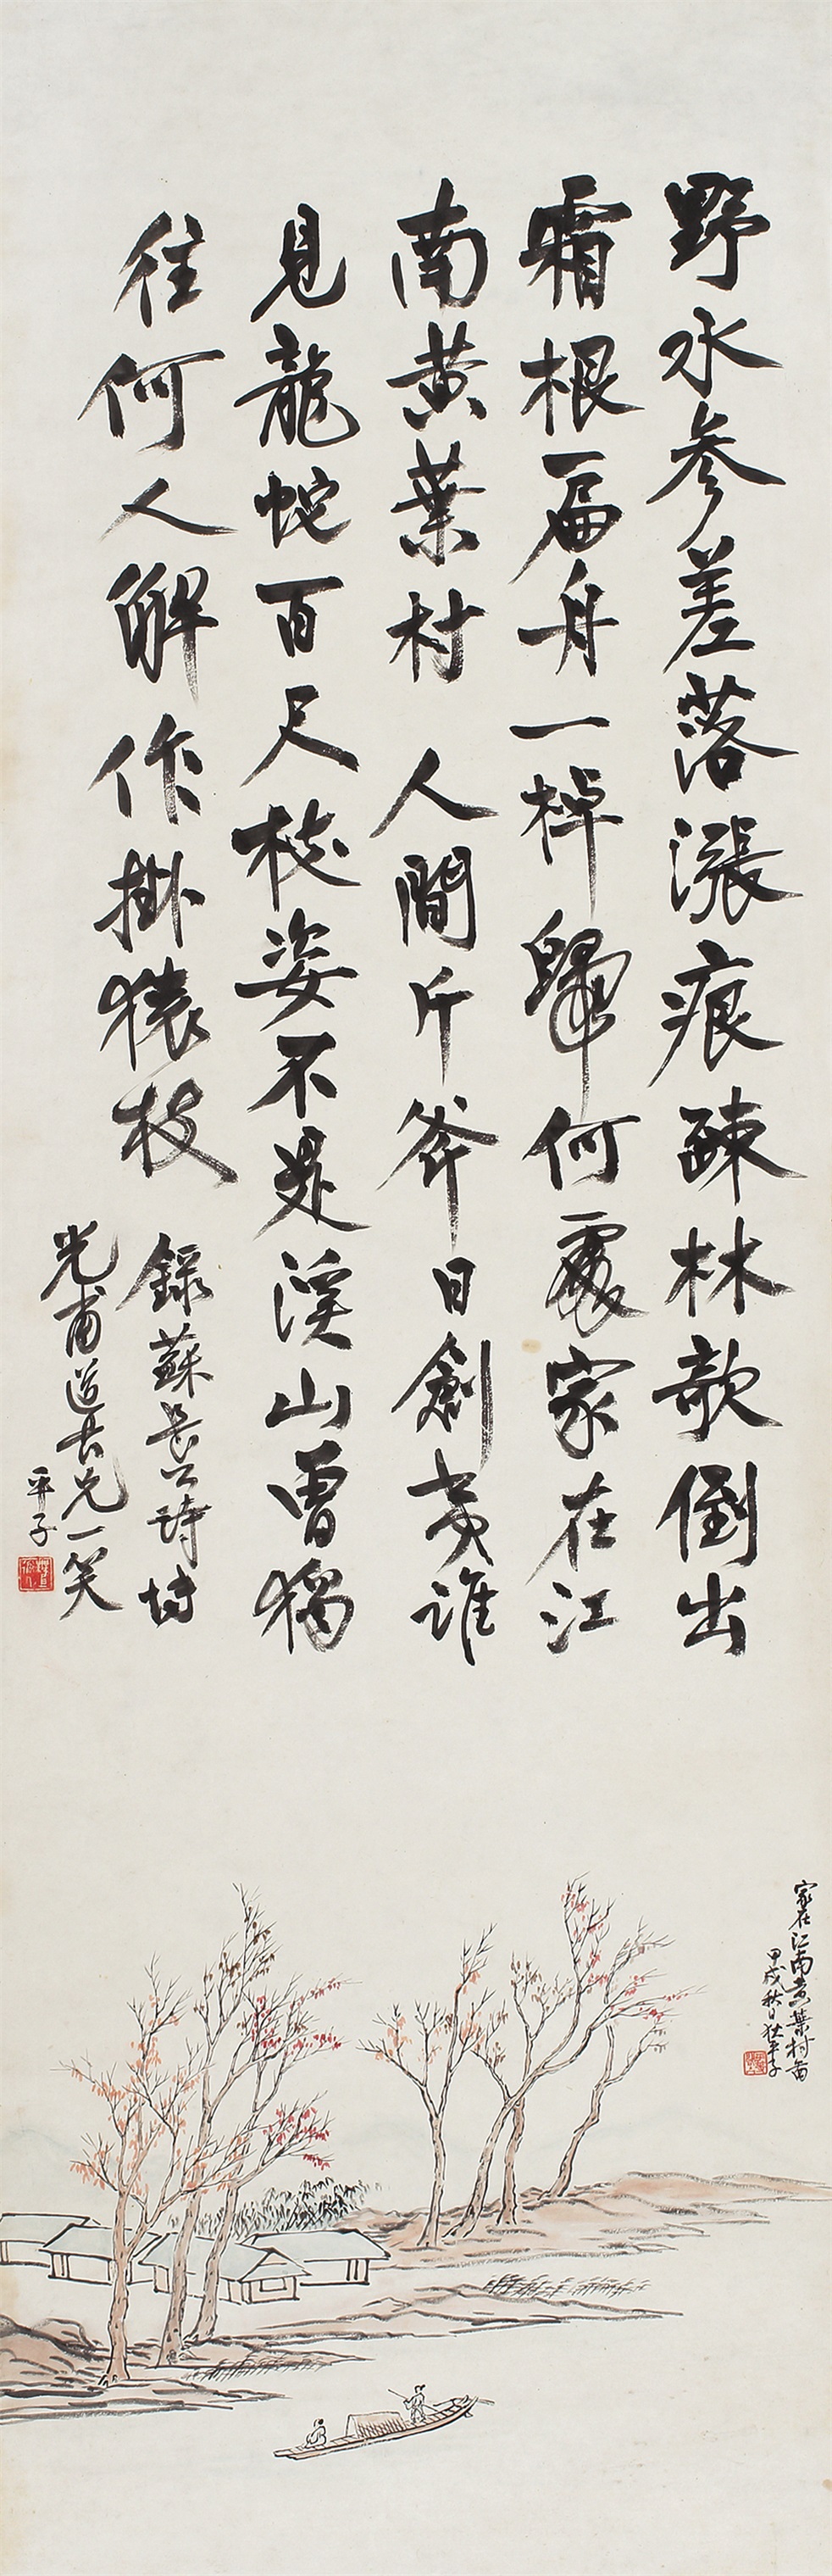 野水參差落漲痕疎林欹倒出
霜根扁舟一棹歸何處家在江
南黃葉村 人間斤斧日創夷誰
見龍蛇百尺枝姿不是溪山曾獨
往何人解作掛猿枝
錄蘇長公詩博
光甫道長兄一笑
平子
家在江南黃葉村圖
甲戌秋日狄平子